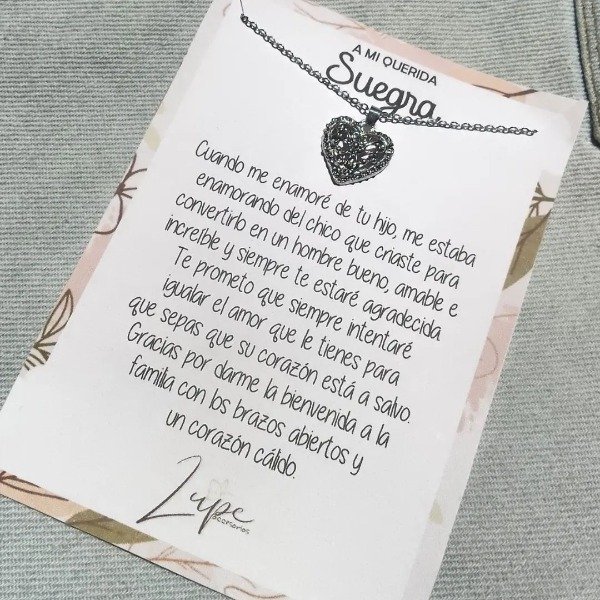 A MI QUERIDA
Suegra,
Cuando me enamoré de tu hijo, me estaba
enamorando del chico que criaste para
convertirlo en un hombre bueno, amable e
increíble y siempre te estaré agradecida
Te prometo que siempre intentaré
igualar el amor que le tienes para
que sepas que su corazón está a salvo.
Gracias por darme la bienvenida a la
familia con los brazos abiertos y
un corazón cálido.
Lupe
accesorios